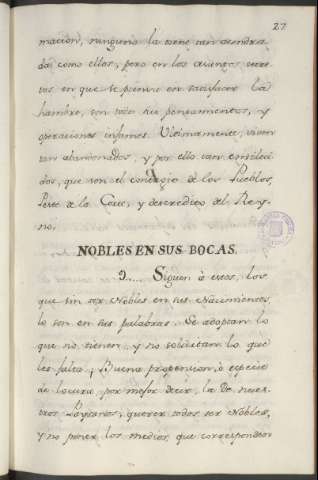 27
macion, ninguno la tiene tan acendra-
da como ellos; pero en los asientos
en que se piensa en satisfacer la
hambre, son todos sus pensamientos, y
operaciones infames. Ultimamente, viven
tan abandonados, y por ello tan envileci-
dos, que son el contagio de los Pueblos,
Peste de la Corte, y descredito del Rey-
no.
NOBLES EN SUS BOCAS.
9..... Siguen à estos, los
que sin ser Nobles en sus Nacimientos,
lo son en sus palabras. Se adoptan lo
que no tienen, y no solicitan lo que
les falta; Buena propension, ò especie
de locura por mejor decir, la de nues-
tros Paysanos, querer todos ser Nobles,
y no poner los medios, que corresponden